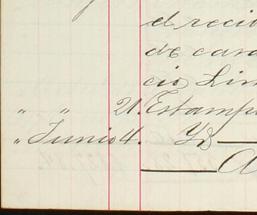 el reci
de car
cio Lim
" " 21. Estamp
" Junio 4. Id
A